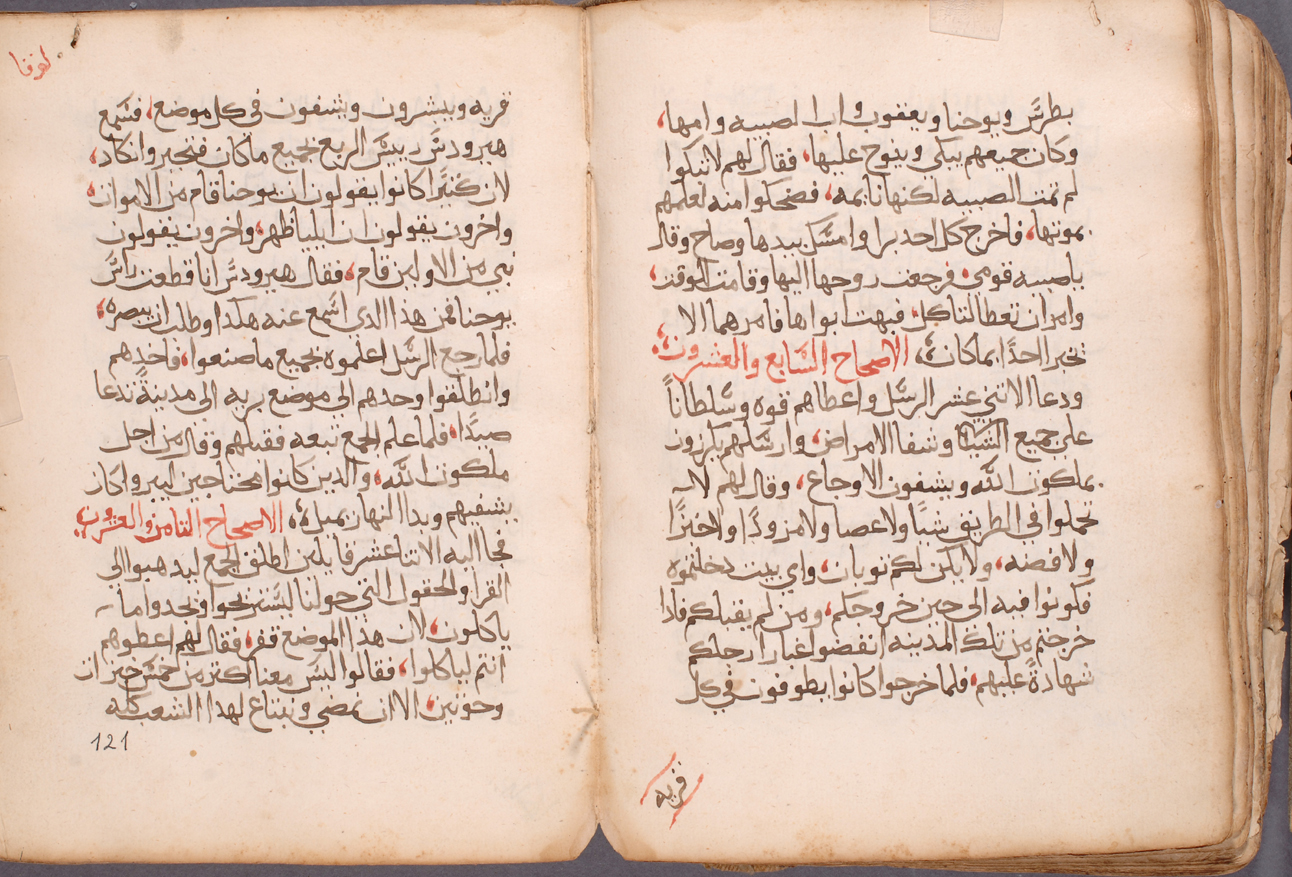 بطرس ويوحنا ويعقوب واب الصبيه وامها،
وكان جميعهم يبكي وينوح عليها، فقال لهم لا تبكوا
لم تمت الصبيه لكنها نايمه، فضحكوا منه لعلمهم
بموتها، فاخرج كل احد برا وامسك بيدها وصاح وقال
يا صبيه قومي، فرجعت روحها اليها وقامت الوقت،
وامر ان تعطا لتاكل، فبهت ابواها فامرهما الا
تخبرا احدًا بما كان، الاصحاح السابع والعشرون،
ودعا الاتني عشر الرسل واعطاهم قوه وسلطانًا
على جميع الشياطين وشفا الامراض، وارسلهم يكرزون
بملكوت الله ويشفون الاوجاع، وقال لهم لا
تحملوا في الطريق شيًا ولا عصا ولا مزودًا ولا خبزًا
ولا فضه، ولا يكن لكم توبان، واي بيت دخلتموه
فكونوا فيه الى حين خروجكم، ومن لم يقبلكم فاذا
خرجتم من تلك المدينه انفضوا غبار ارجلكم
شهادةً عليهم، فلما خرجوا كانوا يطوفون في كل
قريه
لوقا
قريه ويبشرون ويشفون في كل موضع، فسمع
هيرودس رييس الربع بجميع ما كان فتحير وانكاد،
لان كتيرًا كانوا يقولون ان يوحنا قام من الاموات،
واخرون يقولون ان ايليا ظهر، واخرون يقولون
نبي من الاولين قام، فقال هيرودس انا قطعت راس
يوحنا فمن هذا الدي اسمع عنه هكدا وطلب ان يبصره،
فلما رجع الرسل اعلموه بجميع ما صنعوا، فاخدهم
وانطلقوا وحدهم الى موضع بريه الى مدينةً تدعا
صيدًا، فلما علم الجمع تبعه فقبلهم وقال من اجل
ملكوت الله، والدين كانوا محتاجين ليبروا كان
يشفيهم وبدا النهار يميل، الاصحاح التامن والعشرون،
فجا اليه الاتنا عشر قايلين اطلق الجمع ليدهبوا الى
القرا والحقول التي حولنا ليستريحوا ويجدوا ما
ياكلون، لان هذا الموضع قفر، فقال لهم اعطوهم
انتم لياكلوا، فقالوا ليس معنا اكتر من خمس خبزات
وحوتين، الا ان نمضي ونبتاع لهدا الشعب كله
121